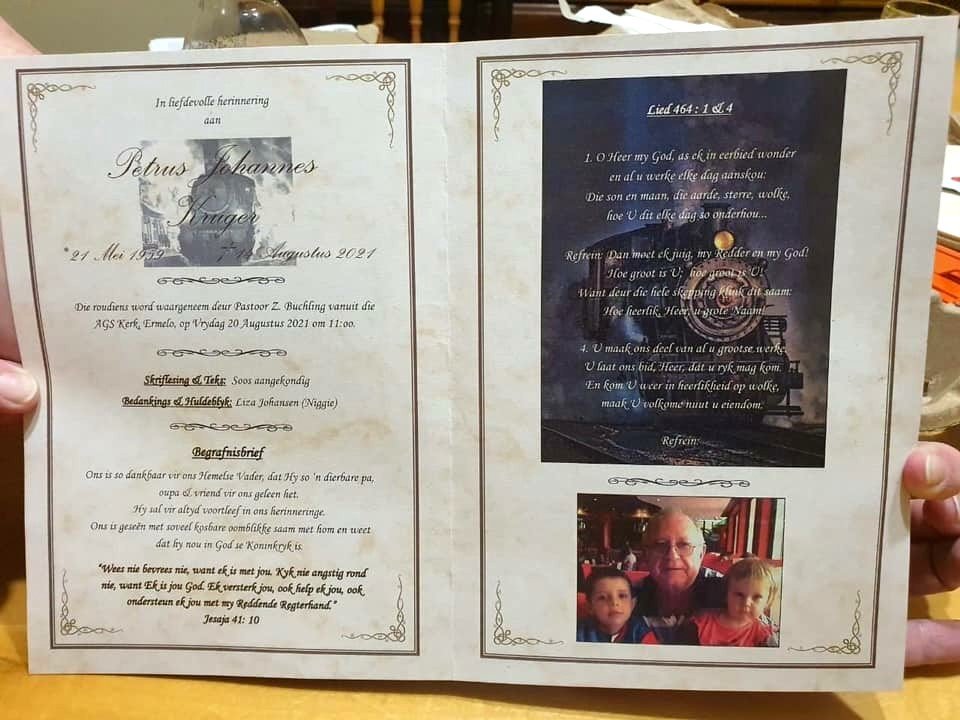 In liefdevolle herinnering
aan
Petrus Johannes
Kruger
*21 Mei 1959 14 Augustus 2021
Die roudiens word waargeneem deur Pastoor Z. Buchling vanuit die
AGS Kerk, Ermelo, op Vrydag 20 Augustus 2021 om 11:00.
Skriflesing & Teks: Soos aangekondig
Bedankings & Huldeblyk: Liza Johansen (Niggie)
Begrafnisbrief
Ons is so dankbaar vir ons Hemelse Vader, dat Hy so 'n dierbare pa,
oupa & vriend vir ons geleen het.
Hy sal vir altyd voortleef in ons herinneringe.
Ons is geseën met soveel kosbare oomblikke saam met hom en weet
dat hy nou in God se Koninkryk is.
"Wees nie bevrees nie, want ek is met jou. Kyk nie angstig rond
nie, want Ek is jou God. Ek versterk jou, ook help ek jou, ook
ondersteun ek jou met my Reddende Regterhand."
Jesaja 41: 10
Lied 464 : 1 & 4
1. O Heer my God, as ek in eerbied wonder
en al u werke elke dag aanskou:
Die son en maan, die aarde, sterre, wolke,
hoe U dit elke dag so onderhou...
Refrein: Dan moet ek juig, my Redder en my God!
Hoe groot is U; hoe groot is U!
Want deur die hele skepping klink dit saam:
Hoe heerlik, Heer, u grote Naam!
4. U maak ons deel van al u grootse werke.
U laat ons bid, Heer, dat u ryk mag kom.
En kom U weer in heerlikheid op wolke,
maak U volkome nuut u eiendom.
Refrein: